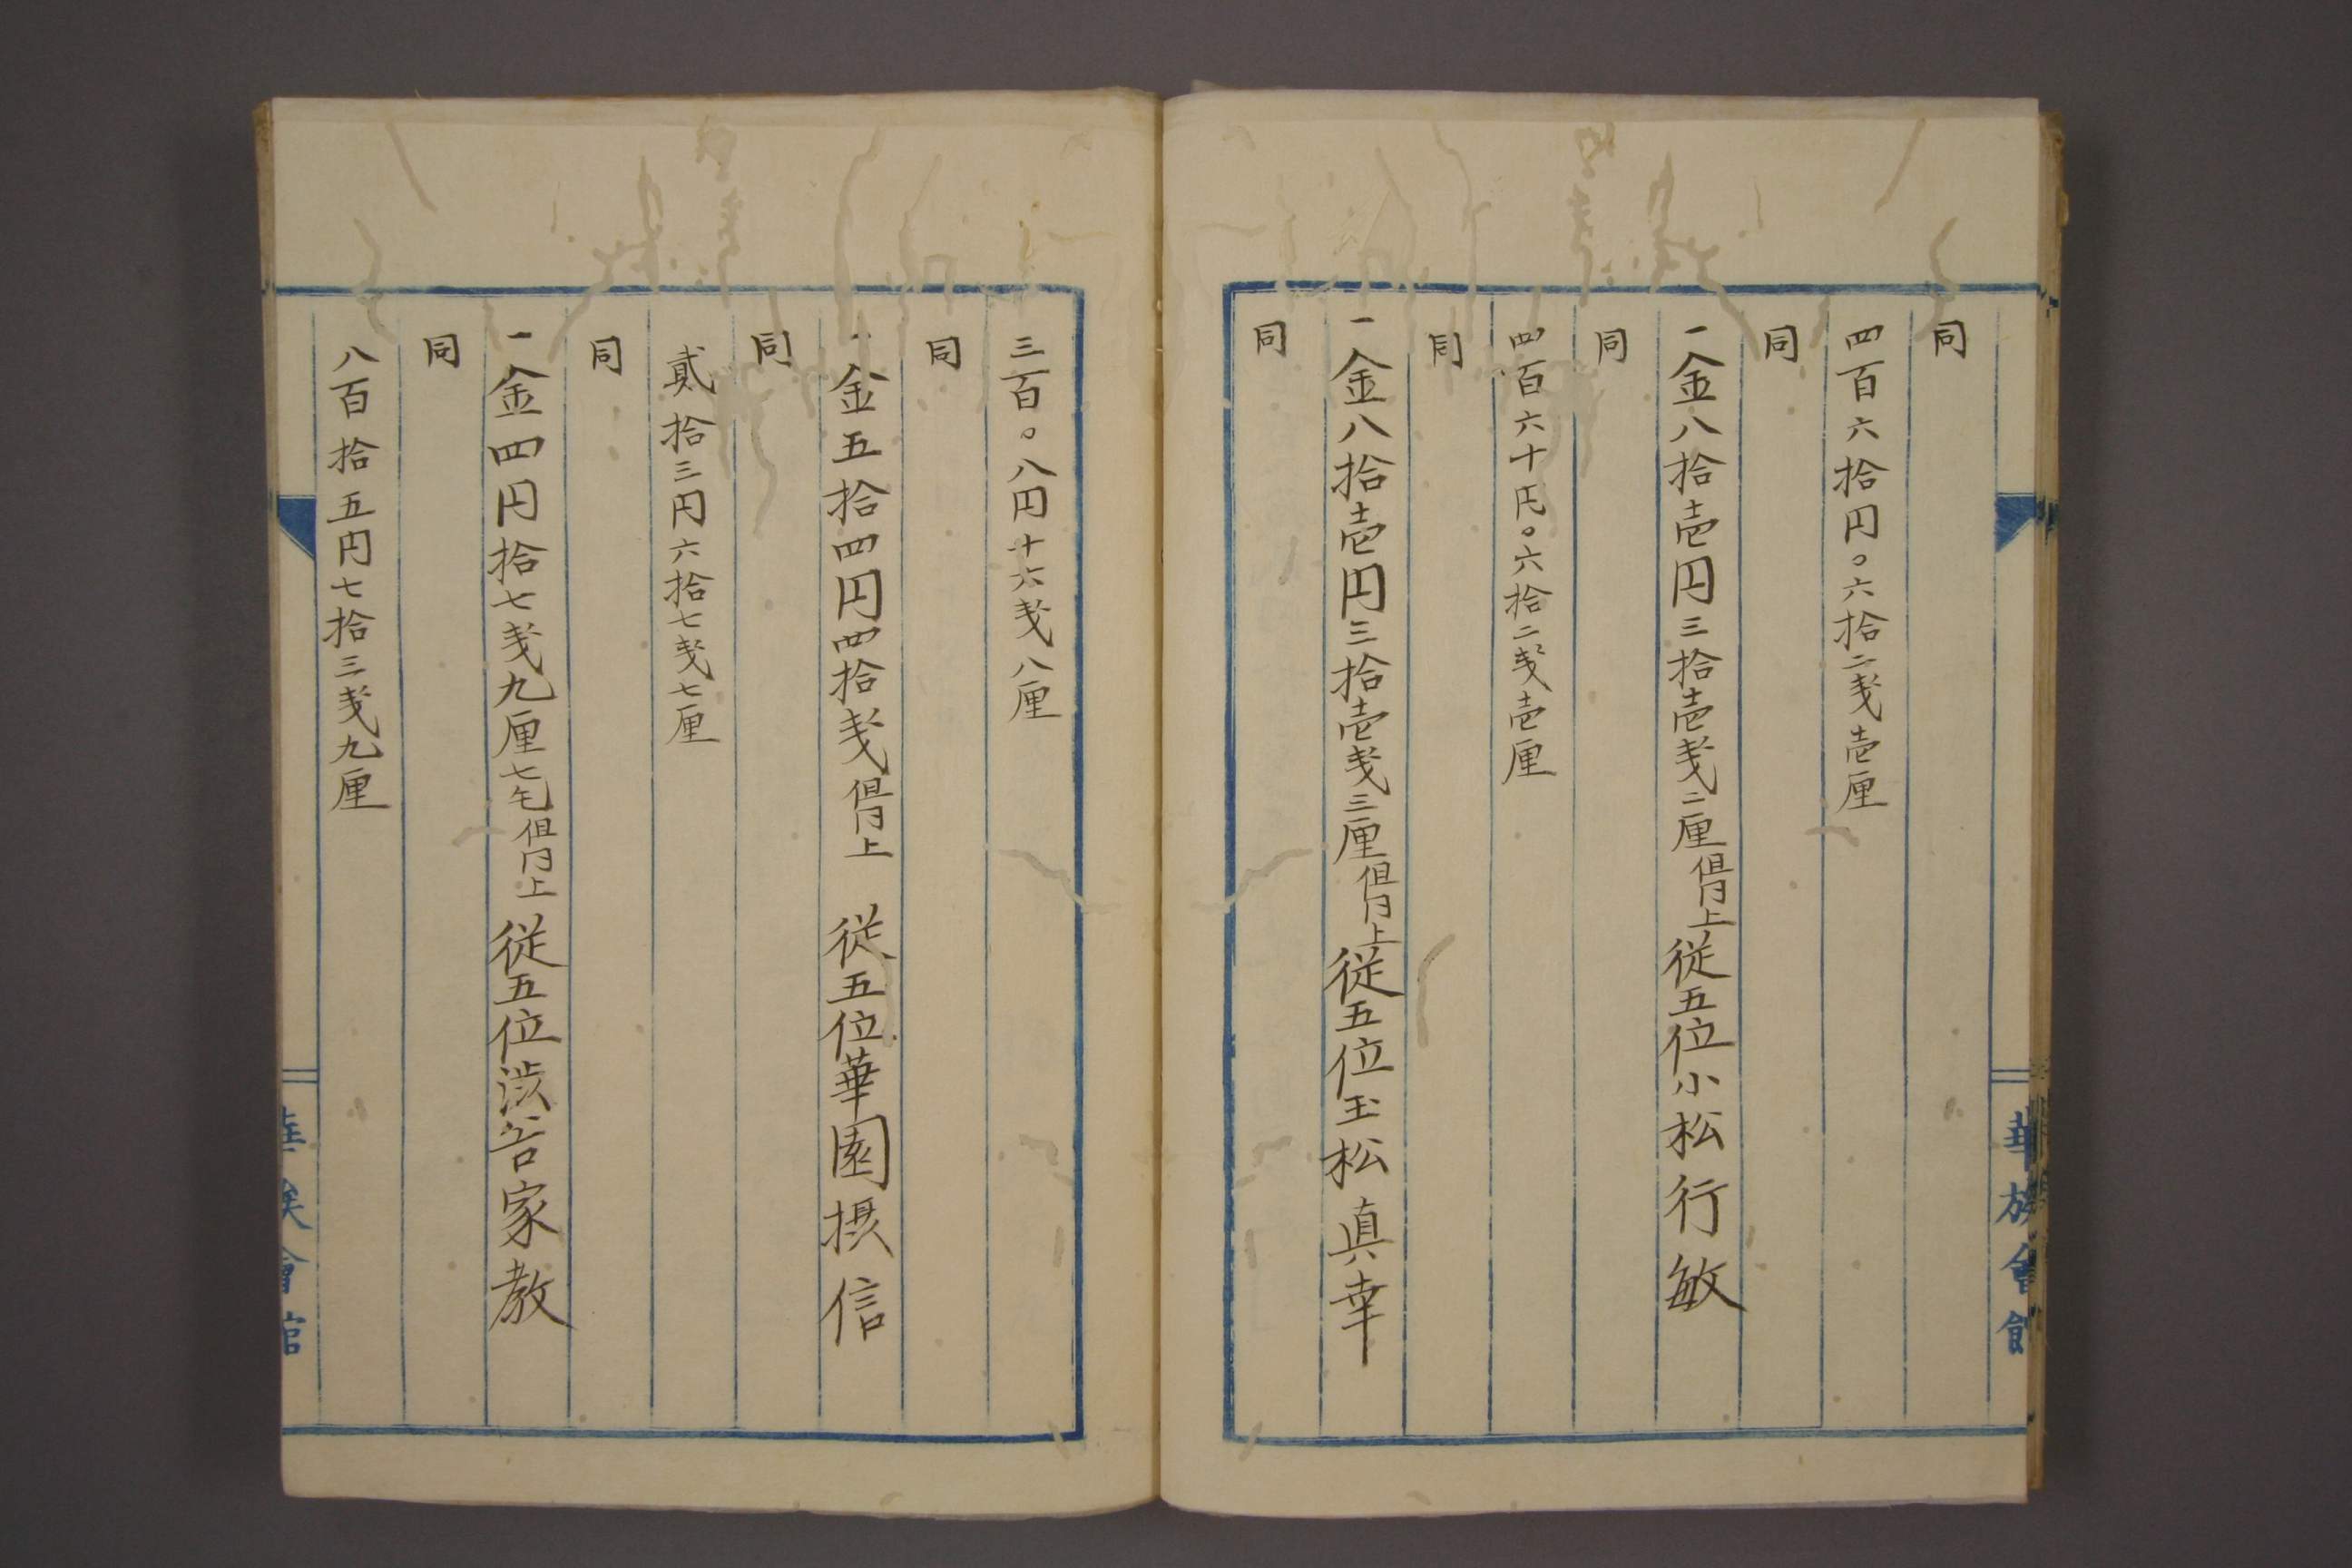 華族會館
同
四百六拾円。六拾二戋壱厘
同
一金八拾壱円三拾壱戋二厘但月上従五位小松行敏
同
四百六十円。六拾二戋壱厘
同
一金八拾壱円三拾壱戋三厘但月上従五位玉松真幸
同
三百。八円十六戋八厘
同
一金五拾四円四拾戋但月上 従五位華園摂信
同
貳拾三円六拾七戋七厘
同
一金四円拾七戋九厘七毛但月上従五位渋谷家教
同
八百拾五円七拾三戋九厘
華族會館